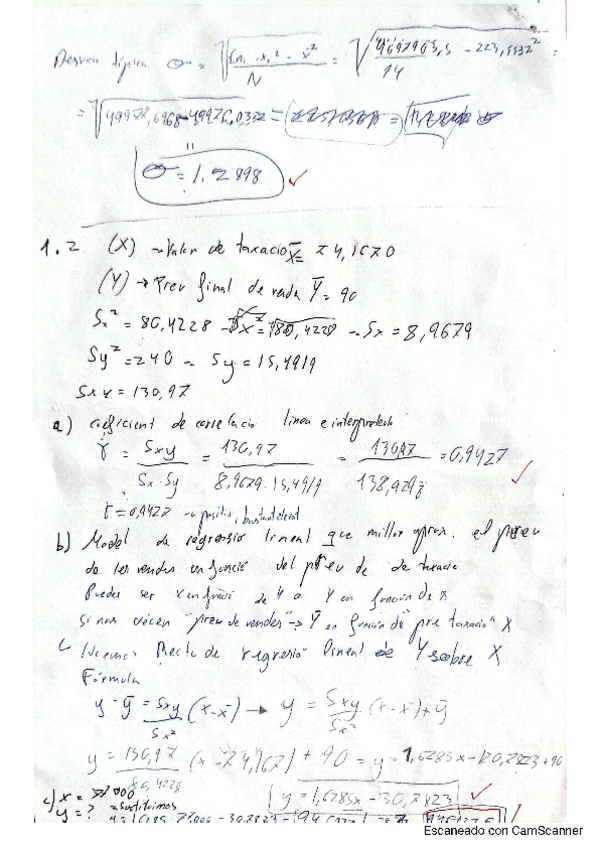 Desviu tipica σ = √(Σn · xᵢ² - x̄² / N) = √(4697903,5 / 94 - 223,5532²) =
= √49977,6968-49976,0332 =
σ = 1.2898 ✓
1.2 (X) → Valor de taxacio x̄ = 74,1670
(Y) → Preu final de venda Ȳ = 90
Sx² = 80,4228 → Sx = 8,9679
Sy² = 240 → Sy = 15,4919
Sxy = 130,97
a) coeficient de correlacio linea e interpretalo
r = Sxy / Sx · Sy = 130,97 / 8,9679 · 15,4919 = 130,97 / = 0,9427 ✓
r = 0,9427 → positiu, bastant
b) Model de regressio lineal que millor aprox. el preu
de les vendes en funció del preu de de taxacio
Puedes ser X en funció de Y o Y en función de X
Si nos dicen "preu de vendes" → Y en función de "pre taxacio" X
Recta de regresió lineal de Y sobre X
Fórmula
y - ȳ = Sxy / Sx² (x - x̄) → y = Sxy / Sx² (x - x̄) + ȳ
y = 130,97 / 80,4228 (x - 74,167) + 90 = y = 1,6285x - 120,7823 + 90
y = 1,6285x - 30,7823 ✓
c) x =
y = ? → sustituimos
Escaneado con CamScanner